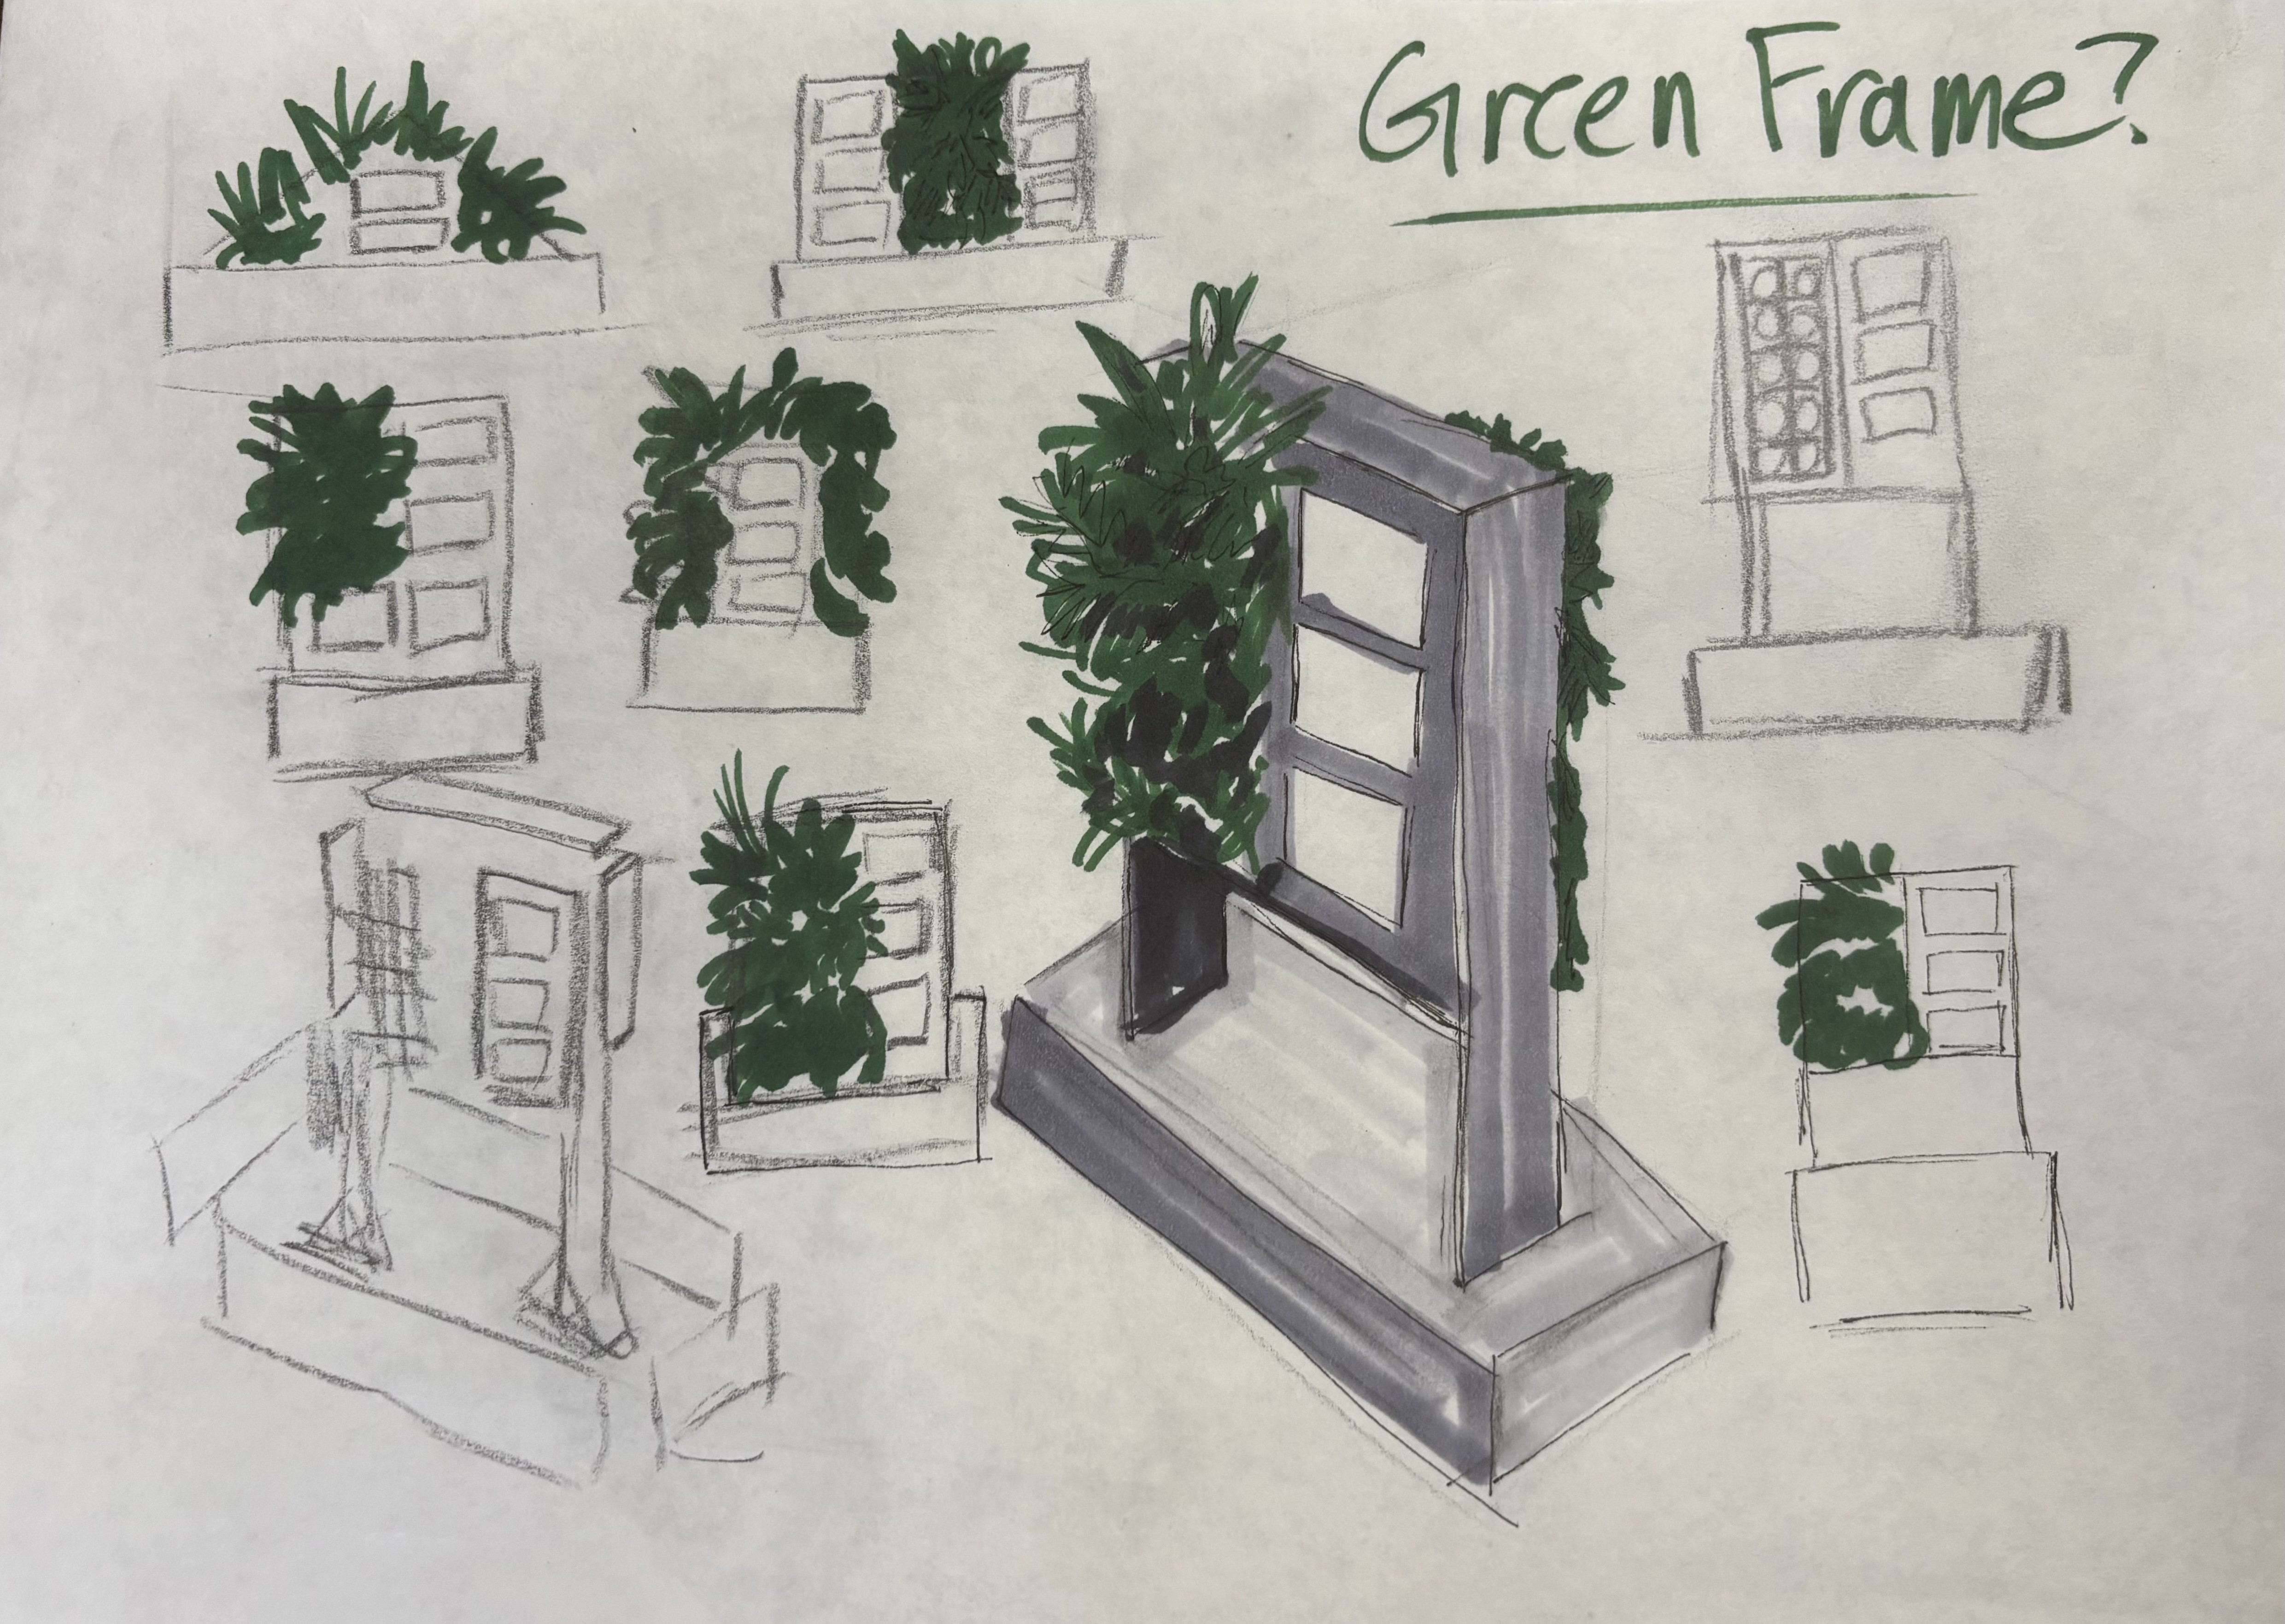 Green Frame?